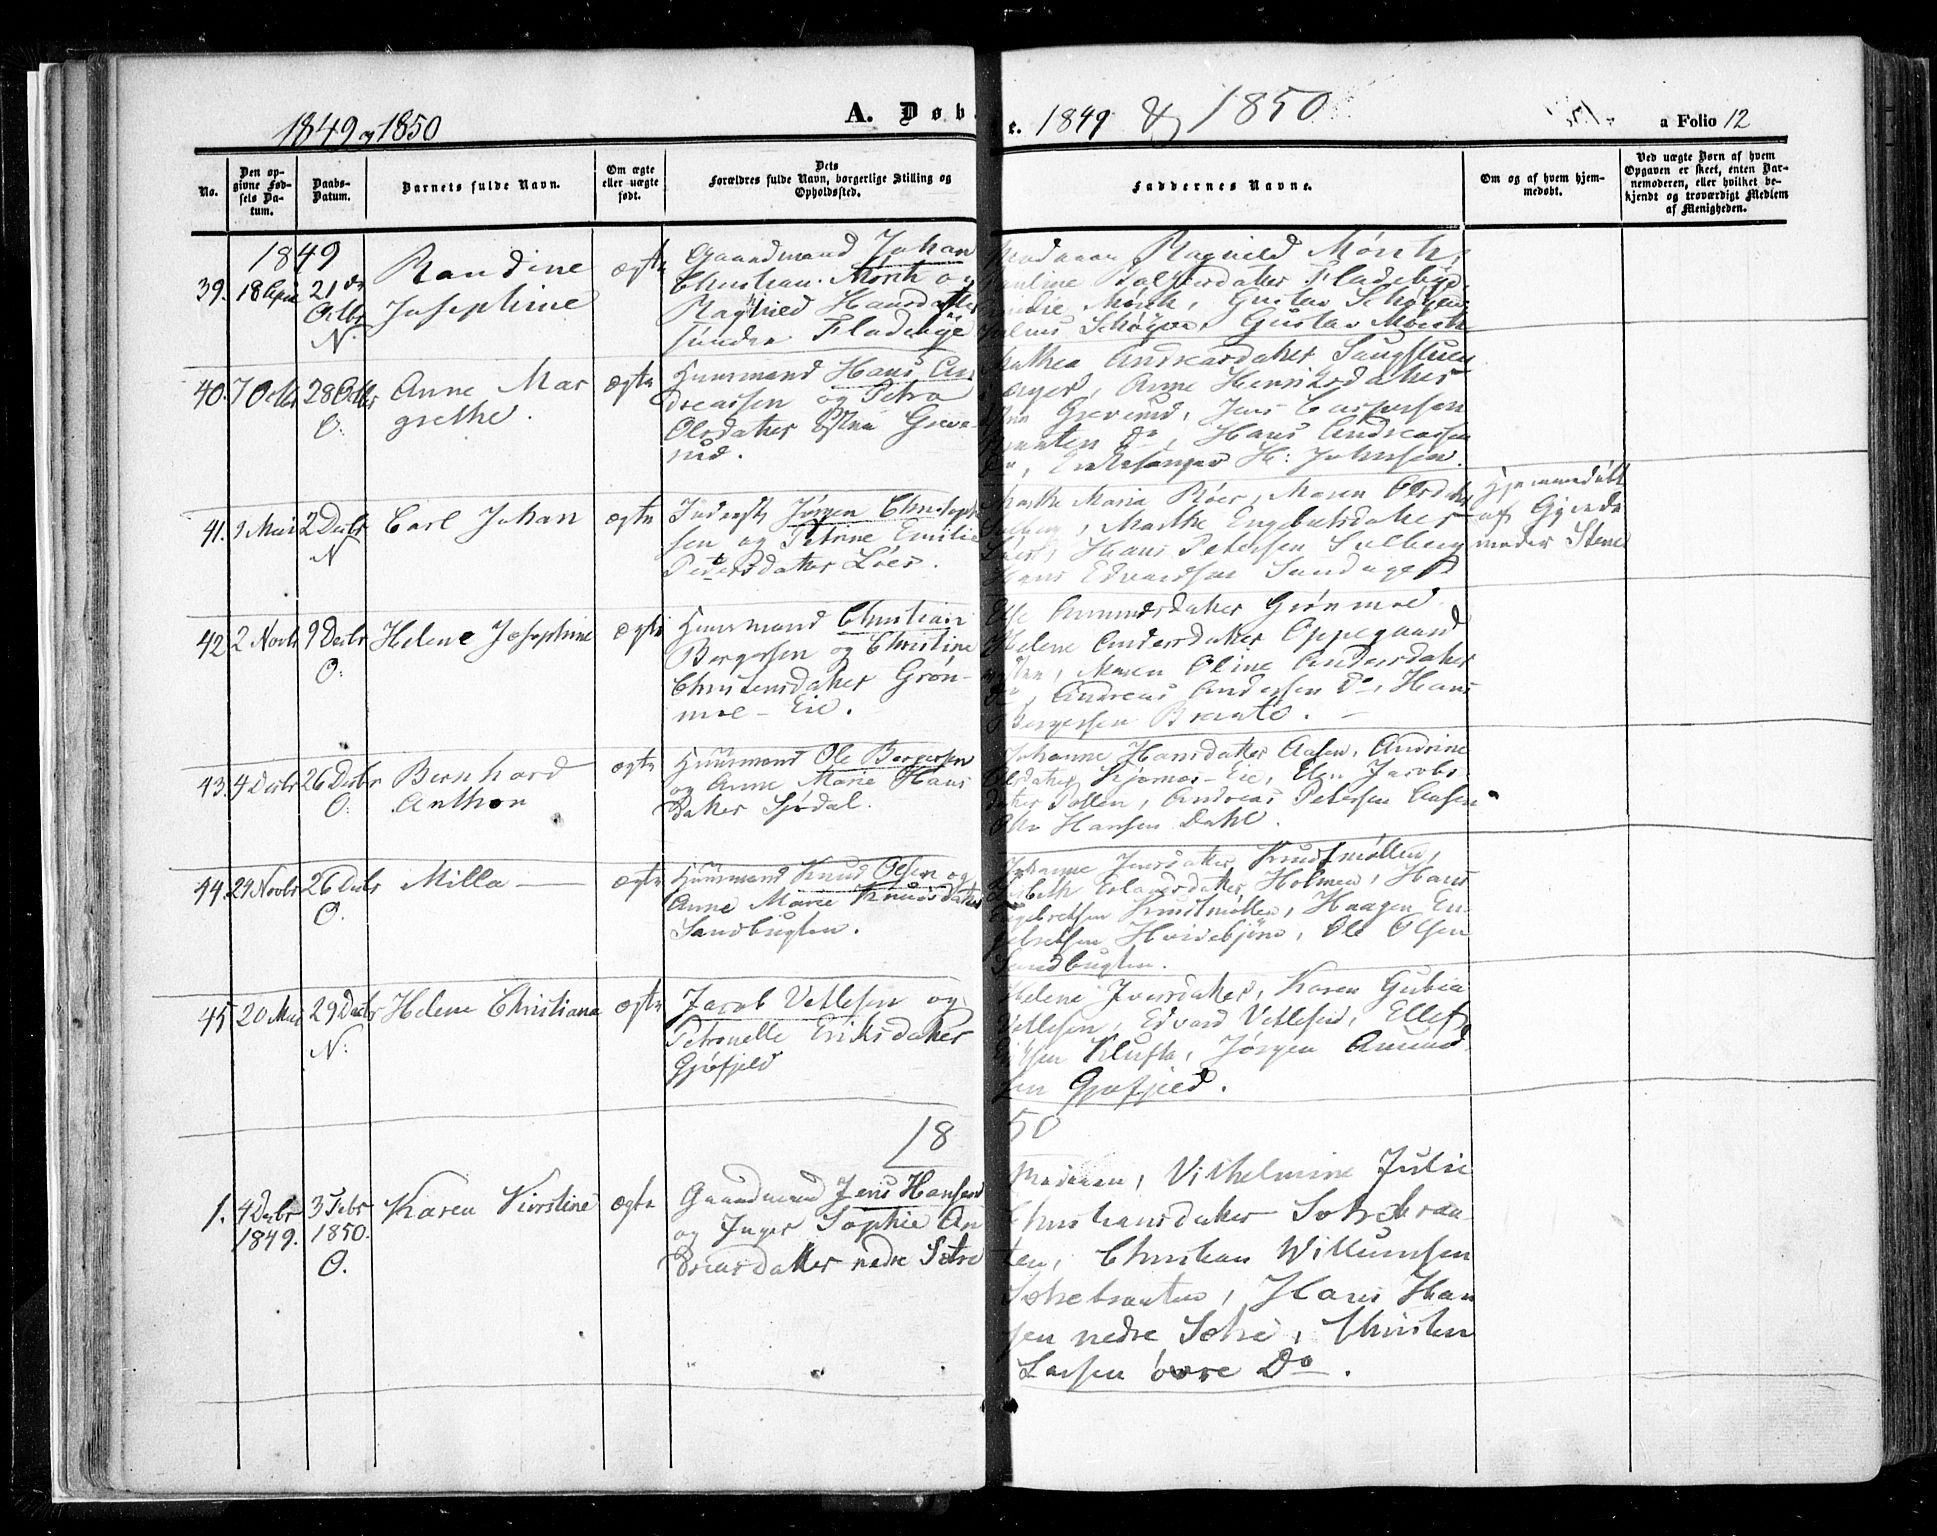 1849 og 1850
A. Døb
e. 1849 & 1850
a Folio 12
No.
Den opgivne Fødsels Datum.
Daabs-Datum.
Barnets fulde Navn.
Om ægte eller uægte født.
Dets Forældres fulde Navn, borgerlige Stilling og Opholdssted.
Faddernes Navne.
Om og af hvem hjemmedøbt.
Ved uægte Børn af hvem Opgaven er skeet, enten Barnemoderen, eller hvilket bekjendt og troværdigt Medlem af Menigheden.
1849
39. 18 April
21 de
Octbr
N.
Randine
Josephine
ægte
Gaardmand Johan
Christian Mørch og
Ragnild Hansdatter
søndre Fladebye
Madam Ragnild Mørch,
Pauline Fladebye
Mørch, Gustav Schøyen
Schøyen, Gustav Mørch
40. 7 Octbr
28 Octbr
O.
Anne Mar
grethe.
ægte
Huusmand Hans An
dreassen og Petra
Olsdatter Østen Greve
rud.
Mathea Andreasdatter Sangstuen
Berger, Anne Henriksdatter
Østen Greverud, Jens Caspersen
Do, Hans Andreassen
Do, Kirkesanger H. Johnsen.
41. 9 Mai
2 Decbr
N
Carl Johan
ægte
Inderst Jørgen Christoph
sen og Petrine Emilie
Pedersdatter Løes.
Marthe Maria Røer, Maren Olsdatter
Solberg, Marthe Engebretsdatter
Hans Petersen Solberg
Hans Edvardsen
Hjemmedøbt
af Gjorde
moder Stene
42. 2 Novbr
9 Decbr
O.
Helene Josephine
ægte
Huusmand Christian
Borgersen og Christine
Christensdatter Grøn-
moe - Eie.
Else Amundsdatter Grønmoe
Helene Andersdatter Oppegaard
østre, Maren Oline Andersdatter
Do, Andreas Andersen Do, Hans
Borgersen Braate. -
43. 4 Decbr
26 Decbr
O.
Bernhard
Anthon
ægte
Huusmand Ole Borgersen
og Anne Marie Hans
datter Spydal.
Johanne Hansdatter Aasen, Andrine
Olsdatter Kjærnes-Eie, Elen Jacobs
datter Pollen, Andreas Petersen Aasen
Ole Hansen Dahl.
44. 29 Novbr
26 Decbr
O.
Milla
ægte
Huusmand Knud Olsen og
Anne Marie Knudsdatter
Sandbugten.
Johanne Jensdatter Krudtmøllen,
Lisbeth Erlandsdatter Holmen, Hans
Engebretsen Krudtmøllen, Haagen En
gebretsen Hvidebjørn, Ole Olsen
Sandbugten.
45. 20 Mai
29 Decbr
N.
Helene Christiana
ægte
Jacob Vetlesen og
Petronelle Eriksdatter
Gjøfjeld
Helene Iversdatter, Karen Gubia
Vetlesen, Edvard Vetlesen, Ellef
Klufta, Jørgen Amund
sen Gjøfjeld.
18 50
1. 4 Decbr
1849.
3 Febr
1850.
O.
Karen Kirstine
ægte
Gaardmand Jens Hansen
og Inger Sophie An
dreasdatter nedre Sætre
Madam, Vilhelmine Julie
Christiansdatter Sætrebraa-
ten, Christian Willumsen
Sætrebraaten, Hans Han
sen nedre Sætre, Christen
Larsen øvre Do.